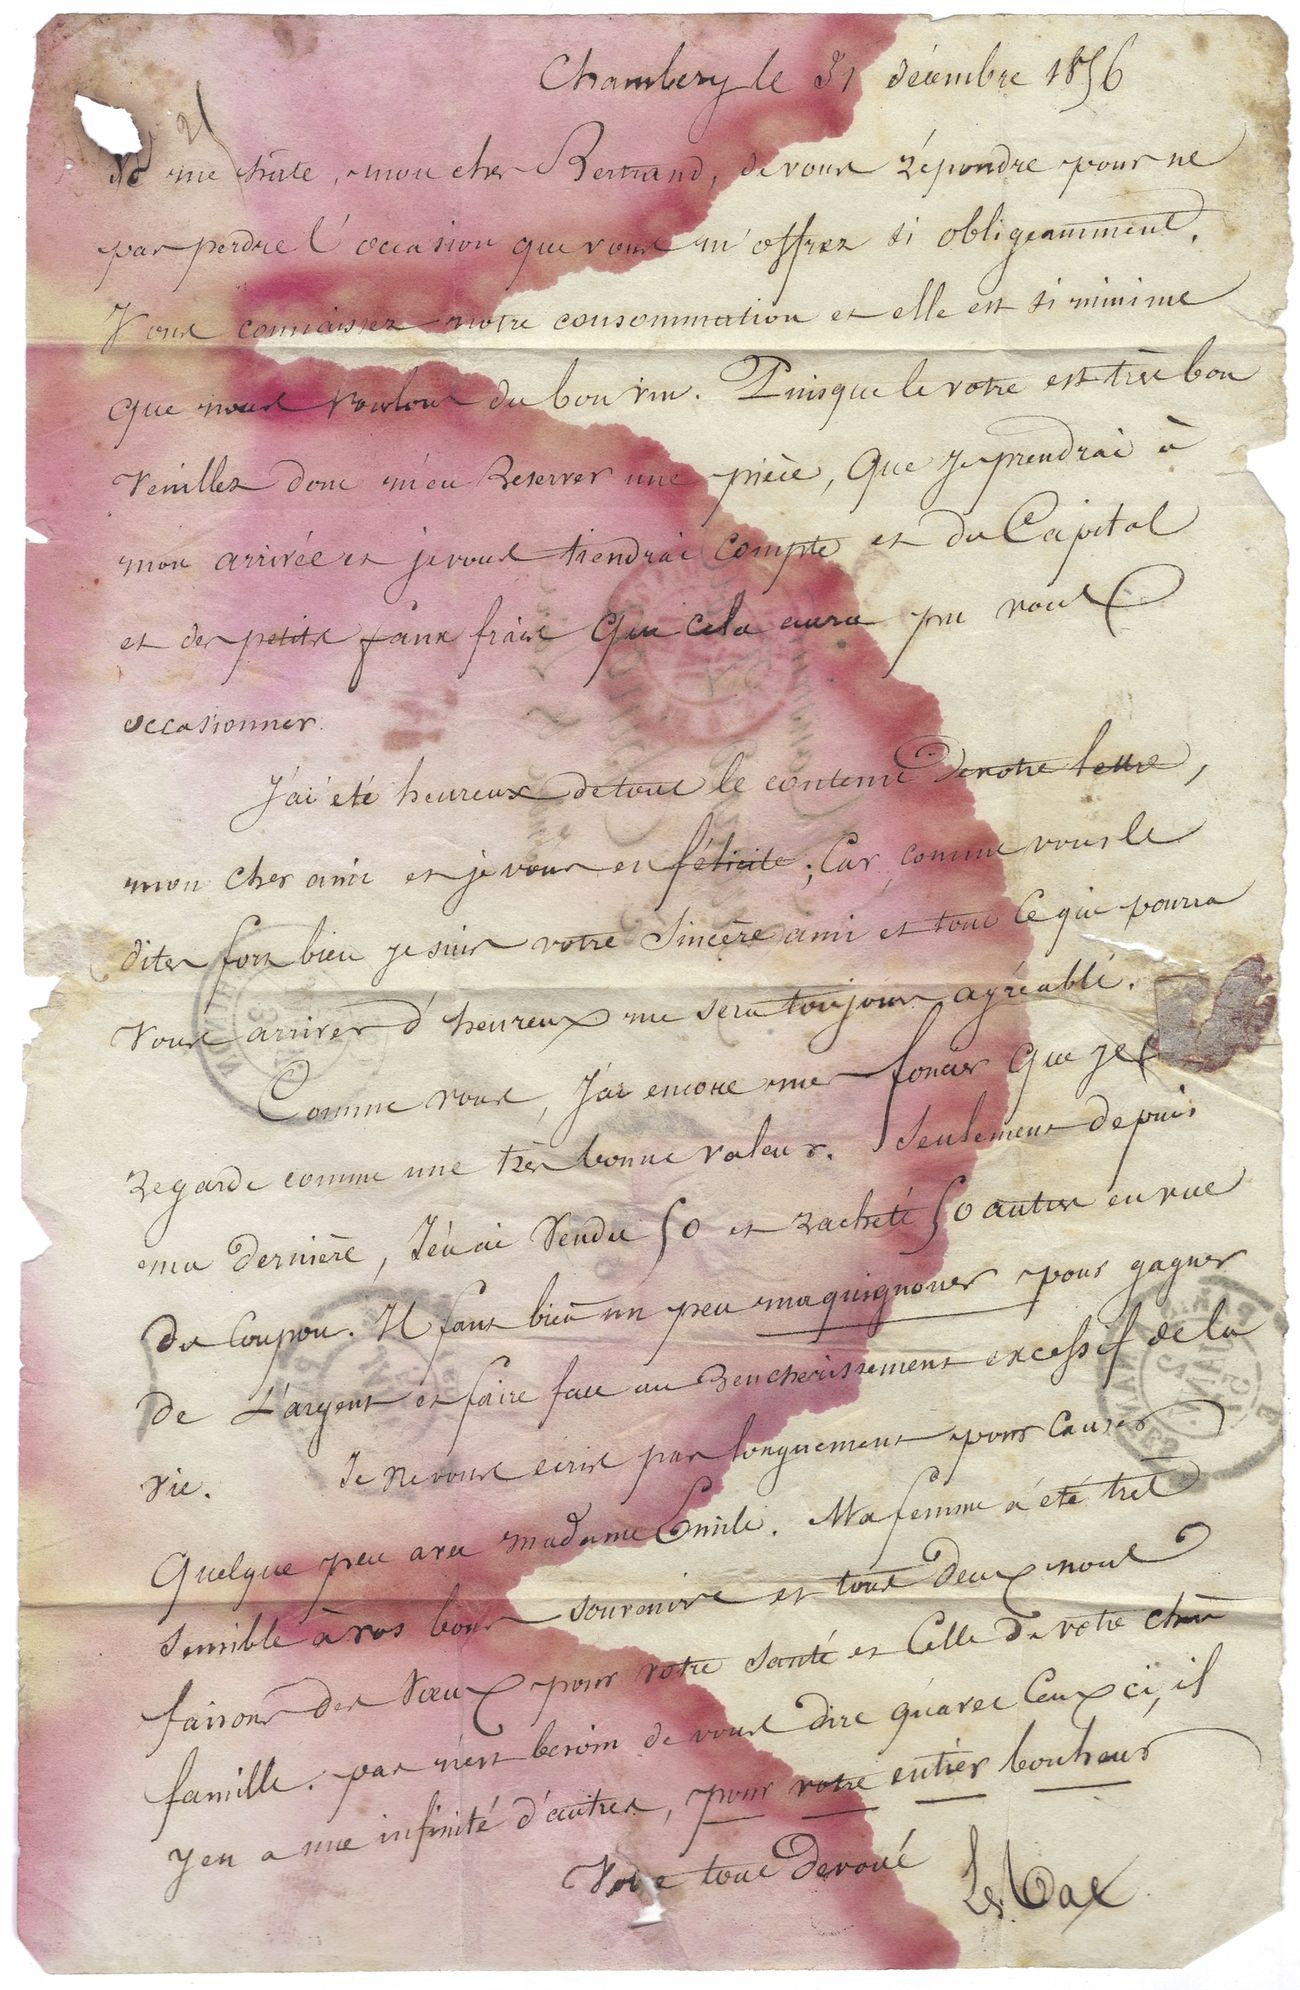 Chambery le 31 décembre 1856
Je me hâte, mon cher Bertrand, de vous répondre pour ne
pas perdre l'occasion que vous m'offrez si obligeamment.
Vous connaissez notre consommation et elle est si minime
que nous voulons du bon vin. Puisque le votre est très bon
Veuillez donc m'en Reserver une pièce, que je prendrai à
mon arrivée et je vous tiendrai compte et du Capital
et des petits faux frais que cela aura pu vous
occasionner.
J'ai été heureux de tout le contenu de votre lettre,
mon cher ami et je vous en félicite; Car, comme vous le
dites fort bien je suis votre Sincère ami et tout ce qui pourra
vous arriver d'heureux me sera toujours agréable.
Comme vous, j'ai encore mes foncier que je
Regarde comme une très bonne valeur. Seulement depuis
ma dernière, J'en ai Vendu 50 et racheté 50 autres en vue
du Coupon. Il faut bien un peu maquignoner pour gagner
de L'argent et faire face au Rencherissement excessif de la
vie. Je ne vous écris pas longuement pour Causer
Quelque peu avec madame Emile. Ma femme a été très
Sensible à vos bons souvenirs et tous deux nous
faisons des Vœux pour votre Santé et Celle de votre chère
famille. pas n'est besoin de vous dire qu'avec Ceux ci, il
y en a une infinité d'autres, pour votre entier bonheur
Votre tout devoué